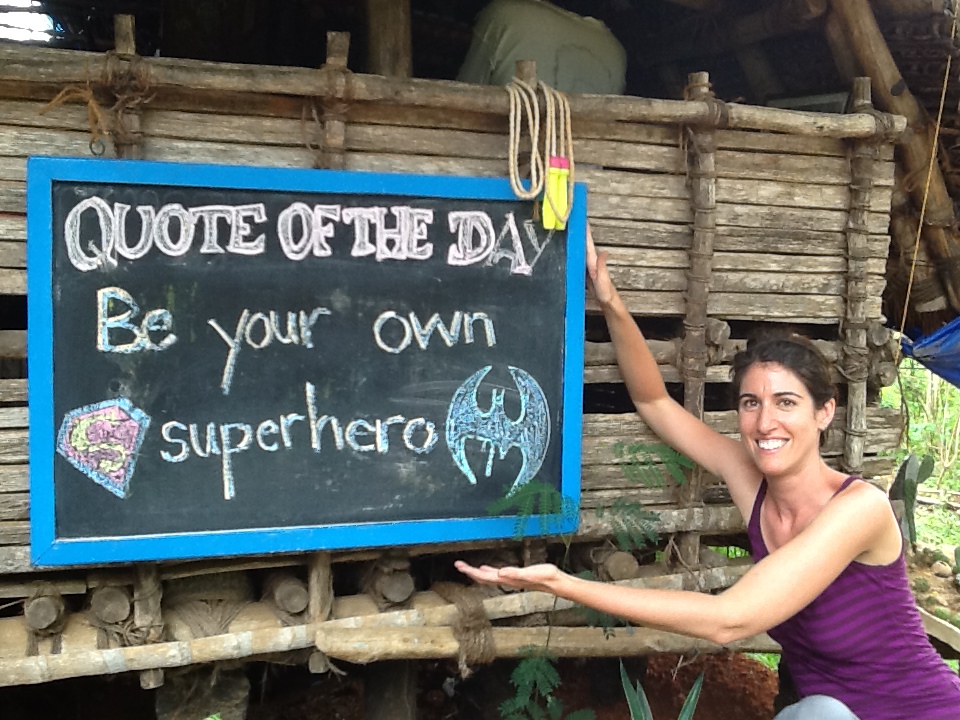 QUOTE OF THE DAY
Be your own
S superhero